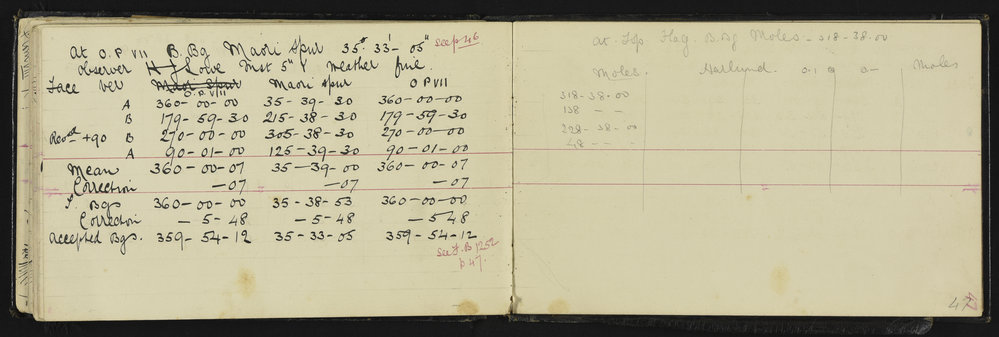 At O.P VII B. Bg Maori Spur 35° 33' 05" see p 46
Observer H J Lowe Inst 5" Y Weather fine.
Face Ver Maori Spur O.P VIII Maori Spur O P VII
A 360-00-00 35-39-30 360-00-00
B 179-59-30 215-38-30 179-59-30
+90 B 270-00-00 305-38-30 270-00-00
A 90-01-00 125-39-30 90-01-00
Mean 360-00-07 35-39-00 360-00-07
Correction -07 -07 -07
Bgs 360-00-00 35-38-53 360-00-00
Correction -5-48 -5-48 -5 48
Accepted Bgs. 359-54-12 35-33-05 359-54-12
see F.B 1252
p 47.
At Top Flag. B. Bg Moles - 318-38-00
Moles. Moles
318-38-00
138 - -
228-38-00
48 - - -
47